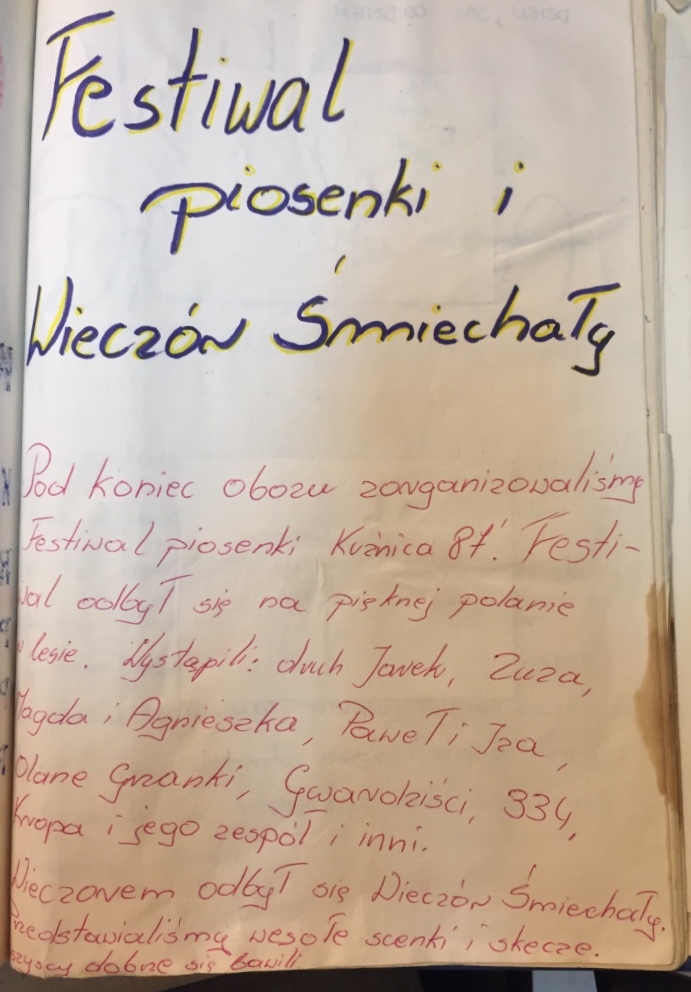 Festiwal
piosenki i
Wieczór Śmiechały
Pod koniec obozu zorganizowaliśmy
Festiwal piosenki Kuźnica 87'. Festi-
wal odbył się na pięknej polanie
w lesie. Wystąpili: druh Jarek, Zuza,
Magda i Agnieszka, Paweł i Iza,
Olane Grzanki, Gwardziści, 334,
Kropa i jego zespół i inni.
Wieczorem odbył się Wieczór Śmiechały.
Przedstawialiśmy wesołe scenki i skecze.
Wszyscy dobrze się bawili